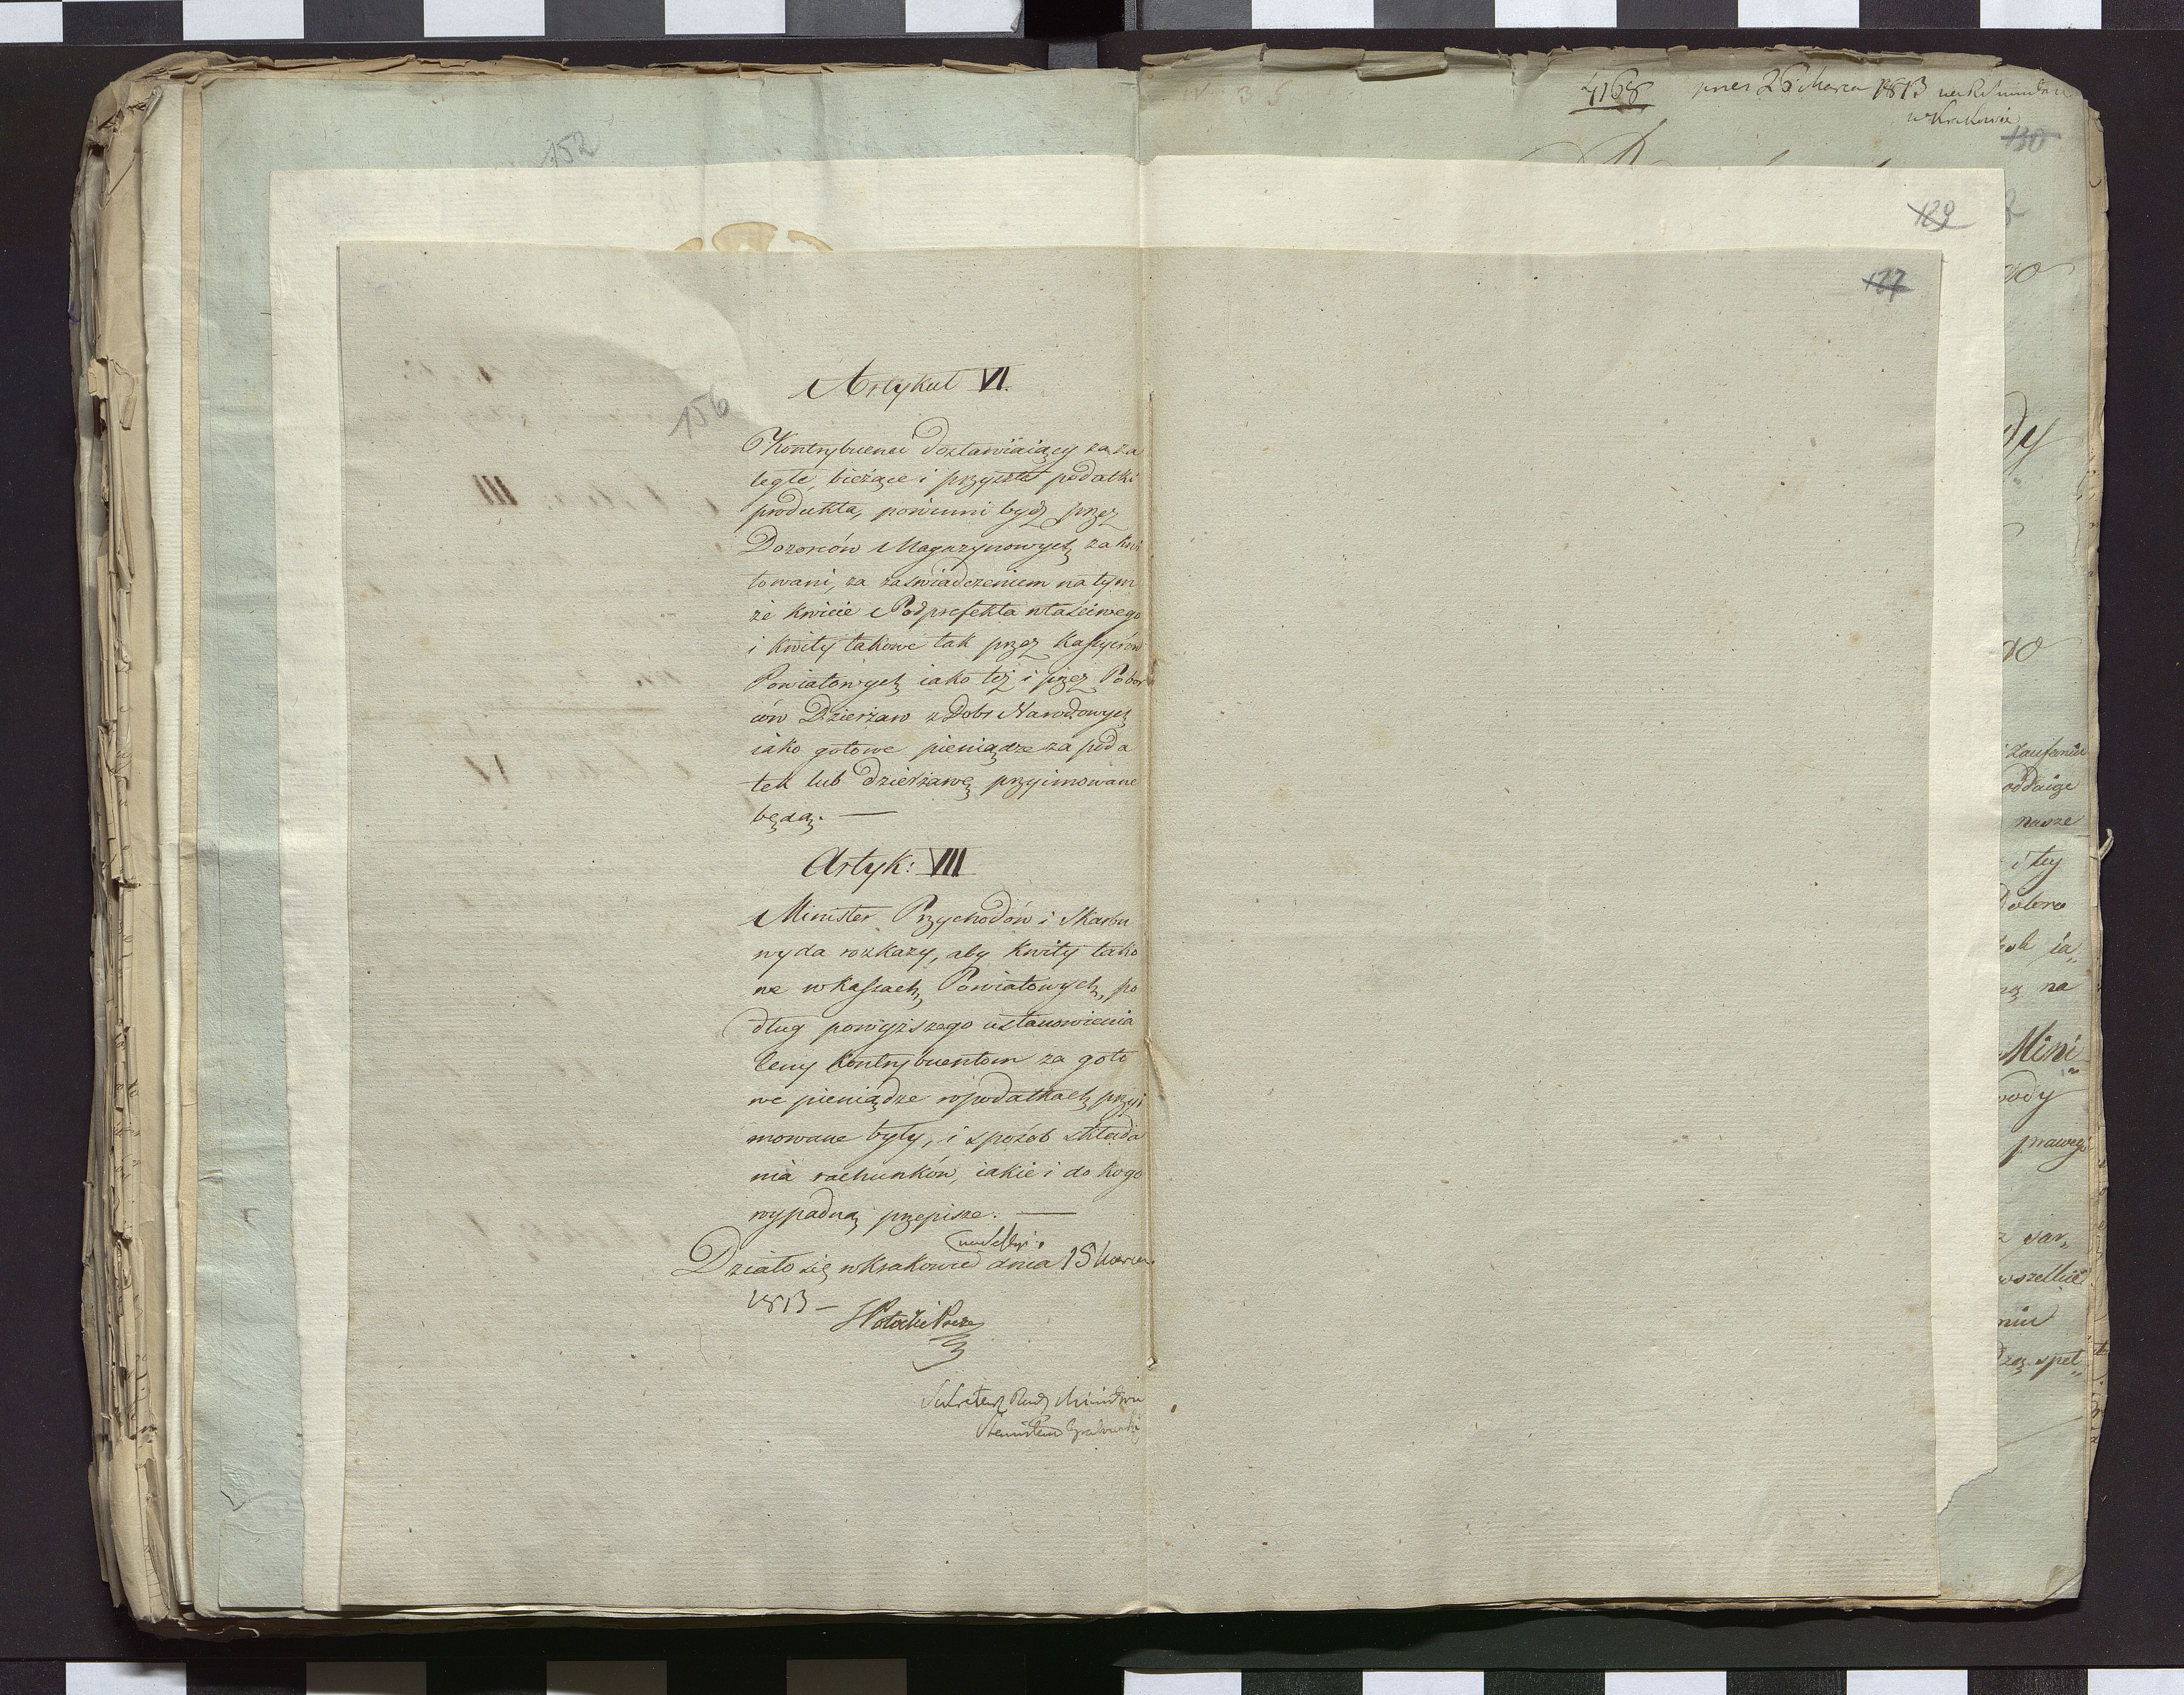 152
156
Artykuł VI.
Kontrybuenci dostawiaiący za za
ległe, bieżące i przyszłe podatki
produkta, powinni bydź przez
Dozorców Magazynowych zakwi
towani, za zaświadczeniem na tym
że kwicie Podprefekta właściwego
i kwity takowe tak przez Kassyerów
Powiatowych iako też i przez Pobor
ców Dzierżaw z Dobr Narodowych
iako gotowe pieniądze za poda
tek lub dzierżawę przyimowane
będą. —
Artyk: VII
Minister Przychodów i Skarbu
wyda rozkazy, aby kwity tako
we w Kassach Powiatowych, po
dług powyższego ustanowienia
Ceny Kontrybuentom za goto
we pieniądze w podatkach przyi
mowane były, i sposób składa
nia rachunków, iakie i do kogo
wypadną przepisze. —
Działo się w Krakowie dnia 15 Marca
1813 —
S Potocki Prezes
Sekretarz Rady Ministrów
Stanisław Grabowski
4168 pres 26 Marca 1813 na R. Ministrów
w Krakowie
130
129
127
dy
Zaufaniu
oddaige
nasze
i tey
Dobra
ia„
na
Mini
wody
prawego
wszelkie
niu